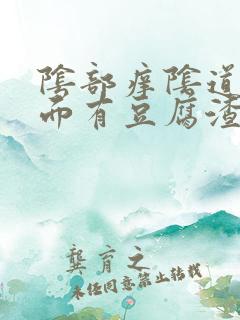 陰部痒陰道
而有豆腐渣
龔育之
未经同意禁止转载